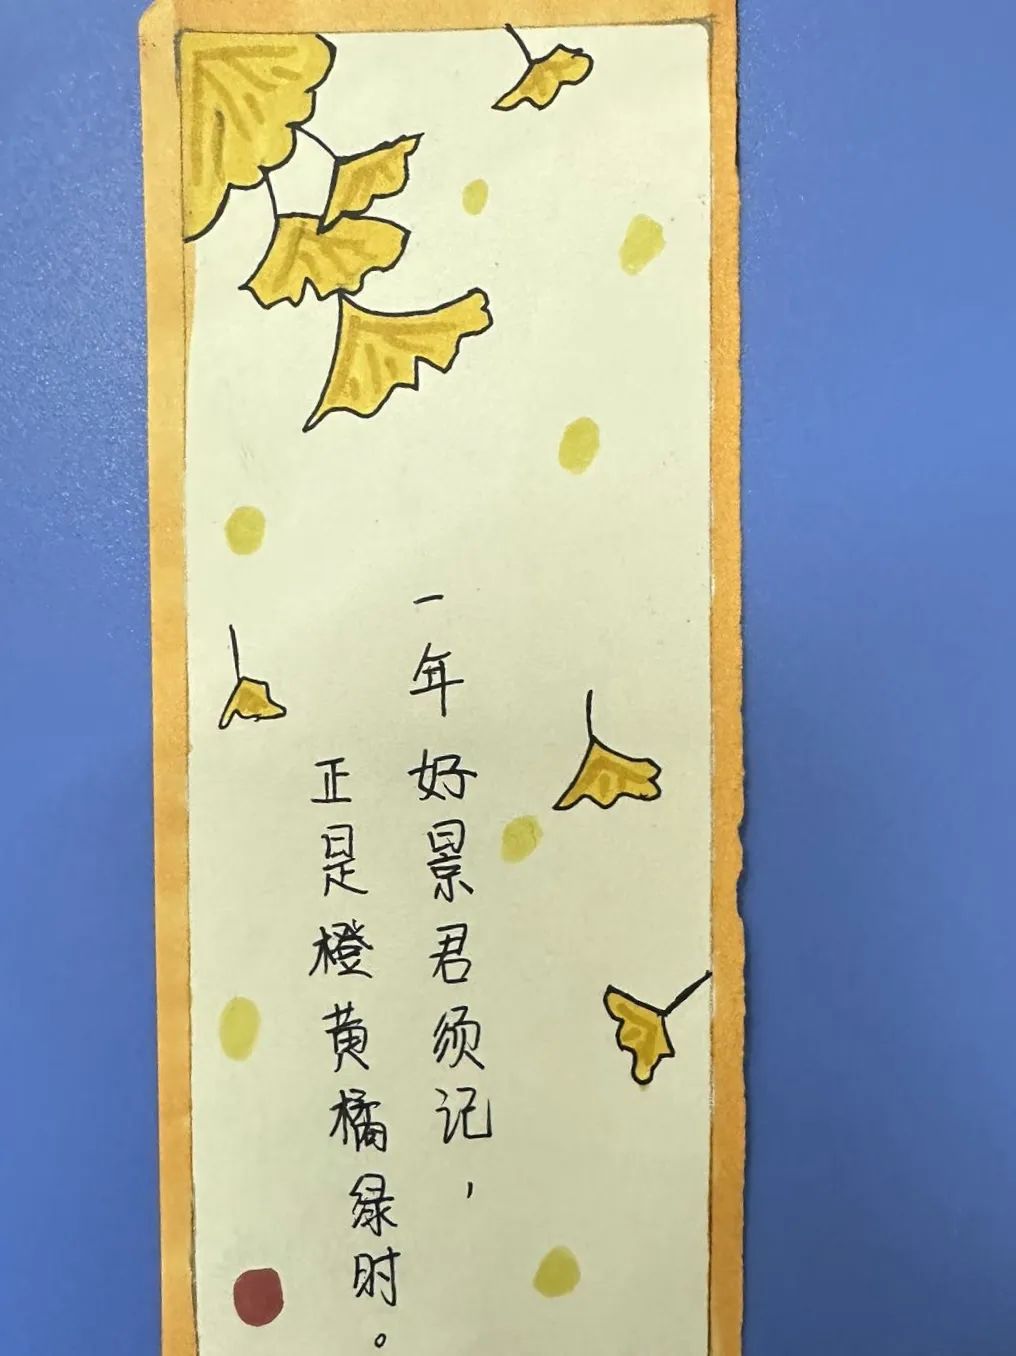 一年好景君须记，
正是橙黄橘绿时。